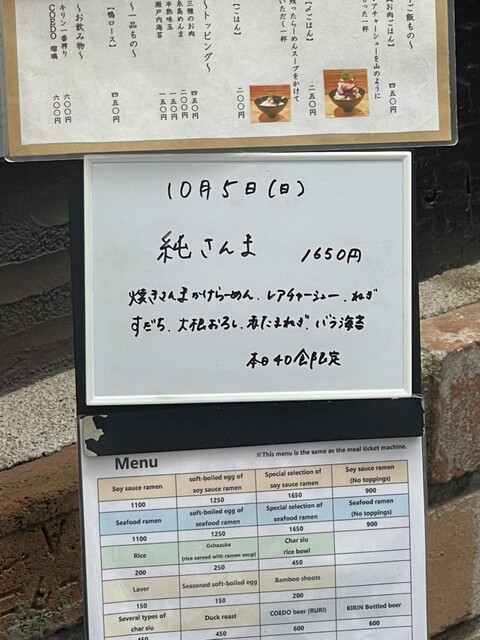 〜ご飯もの〜
お肉ごはん】
アチャーシューを山のように
った一杯
四五〇円
【〆ごはん】
残ったらーめんスープをかけて
いただく一杯
二五〇円
【ごはん】
二〇〇円
〜トッピング〜
三種のお肉 四五〇円
糸島めんま 二〇〇円
半熟味玉 一五〇円
瀬戸内海苔 一五〇円
〜一品もの〜
【鴨ロース】 四五〇円
〜お飲み物〜
キリン一番搾り 六〇〇円
COEDO 瑠璃 六〇〇円
10月5日(日)
純さんま 1650円
焼きさんまかけらーめん、レアチャーシュー、ねぎ
すだち、大根おろし、赤たまねぎ、バラ海苔
本日40食限定
Menu
※This menu is the same as the meal ticket machine.
Soy sauce ramen
soft-boiled egg of
soy sauce ramen
Special selection of
soy sauce ramen
Soy sauce ramen
(No toppings)
1100 1250 1650 900
Seafood ramen
soft-boiled egg of
seafood ramen
Special selection of
seafood ramen
Seafood ramen
(No toppings)
1100 1250 1650 900
Rice
Ochazuke
(rice served with ramen soup)
Char siu
rice bowl
200 250 450
Laver Seasoned soft-boiled egg Bamboo shoots
150 150 200
Several types of
char siu
Duck roast COEDO beer (RURI) KIRIN Bottled beer
450 450 600 600